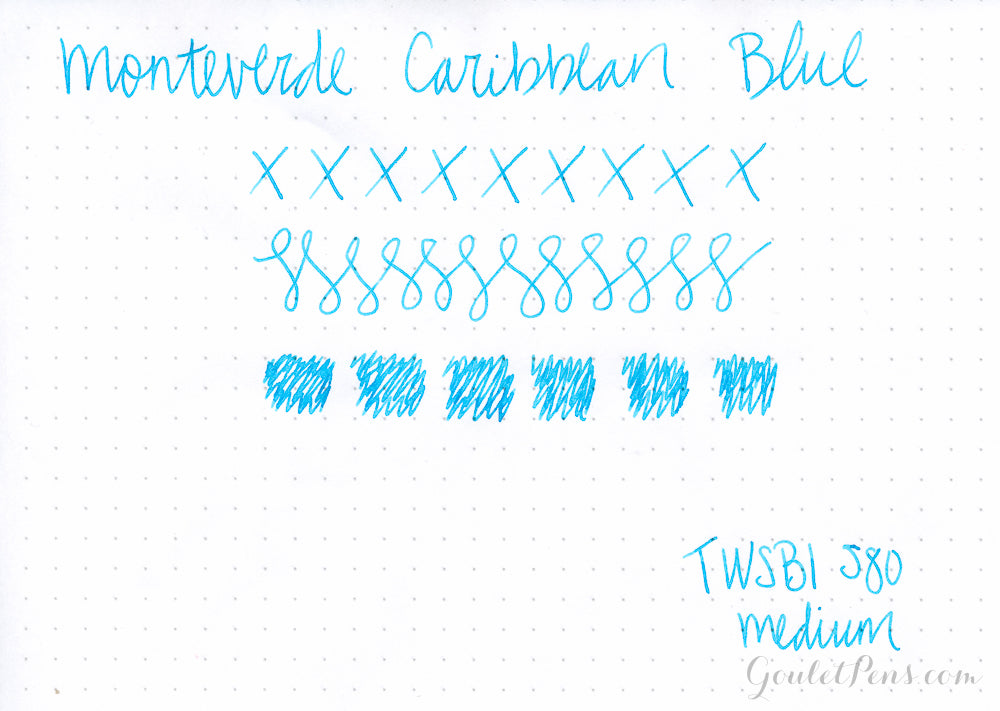 Monteverde Caribbean Blue
X X X X X X X X X
TWSBI 580
medium
GouletPens.com